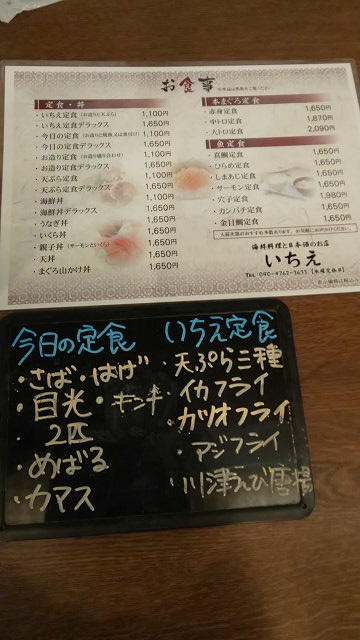 お食事
定食・丼
・いちえ定食(お造りと天ぷら) 1,100円
・いちえ定食デラックス 1,650円
・今日の定食(お造りと焼魚又は煮付け) 1,100円
・今日の定食デラックス 1,650円
・お造り定食(お造り盛り合わせ) 1,100円
・お造り定食デラックス 1,650円
・天ぷら定食 1,100円
・天ぷら定食デラックス 1,650円
・海鮮丼 1,100円
・海鮮丼デラックス 1,650円
・うなぎ丼 1,650円
・いくら丼 1,650円
・親子丼(サーモンといくら) 1,650円
・天丼 1,650円
・まぐろ山かけ丼 1,650円
本まぐろ定食
・赤身定食 1,650円
・中トロ定食 1,870円
・大トロ定食 2,090円
魚定食
・真鯛定食 1,650円
・ひらめ定食 1,650円
・しまあじ定食 1,650円
・サーモン定食 1,650円
・穴子定食 1,980円
・カンパチ定食 1,650円
・金目鯛定食 1,650円
海鮮料理と日本酒のお店
いちえ
今日の定食
・さば・はげ
・目光・キンキ
・2匹
・めばる
・カマス
いちえ定食
・天ぷら三種
・イカフライ
・カツオフライ
・アジフライ
・川津えび唐揚